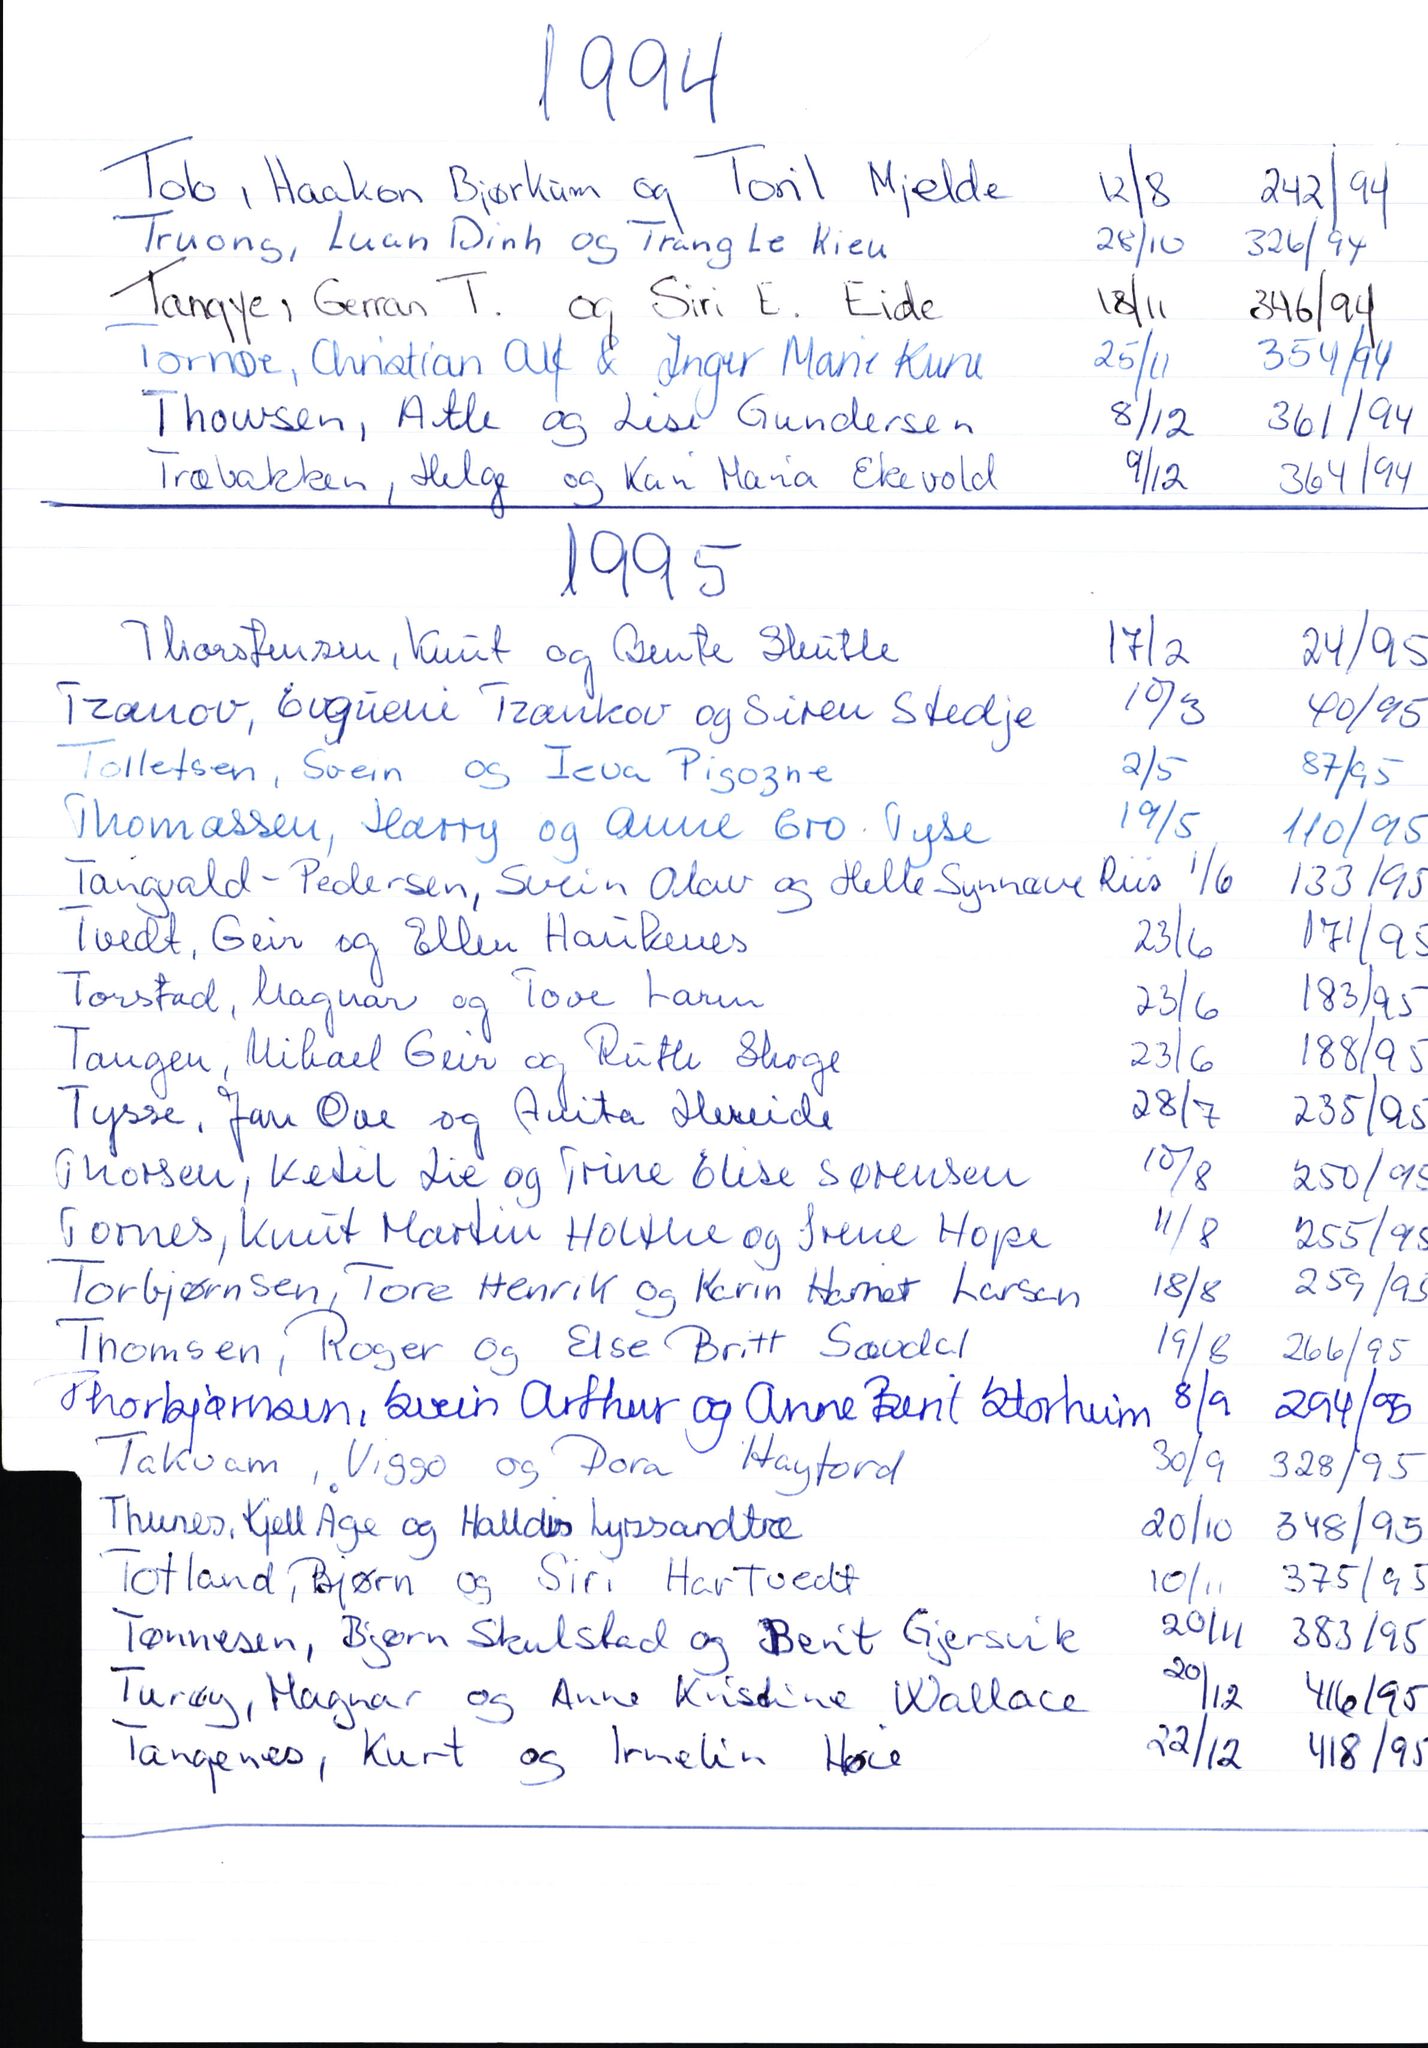 1994
Tob, Haakon Bjørkum og Toril Mjelde 12/8 242/94
Truong, Luan Dinh og Trang Le Kieu 28/10 326/94
Tangye, Gerran T. og Siri E. Eide 18/11 346/94
Tornøe, Christian Alf & Inger Marie Kune 25/11 354/94
Thowsen, Atle og Lise Gundersen 8/12 361/94
Træbakken, Helge og Kari Maria Ekevold 9/12 364/94
1995
Thorstensen, Knut og Bente Skutle 17/2 24/95
Tzanov, Evgueni Tzankov og Siren Stedje 10/3 40/95
Tollefsen, Svein og Ieva Pigozne 2/5 87/95
Thomassen, Harry og Anne Gro Tyse 19/5 110/95
Tangvald-Pedersen, Svein Olav og Helle Synnøve Riis 1/6 133/95
Tvedt, Geir og Ellen Haukenes 23/6 171/95
Torstad, Magnar og Tove Larm 23/6 183/95
Tangen, Mikael Geir og Ruth Skoge 23/6 188/95
Tysse, Jan Ove og Anita Hereide 28/7 235/95
Thorsen, Ketil Lie og Trine Elise Sørensen 10/8 250/95
Tornes, Knut Martin Holthe og Irene Hope 11/8 255/95
Torbjørnsen, Tore Henrik og Karin Harriet Larsen 18/8 259/95
Thomsen, Roger og Else Britt Sævdal 19/8 266/95
Thorbjørnsen, Svein Arthur og Anne Berit Storheim 8/9 294/95
Takvam, Viggo og Dora Hayford 30/9 328/95
Thunes, Kjell Åge og Halldis Lyssandtræ 20/10 348/95
Totland, Bjørn og Siri Hartvedt 10/11 375/95
Tønnesen, Bjørn Skulstad og Berit Gjersvik 20/11 383/95
Turøy, Magnar og Anne Kristine Wallace 20/12 416/95
Tangenes, Kurt og Irmelin Høie 22/12 418/95